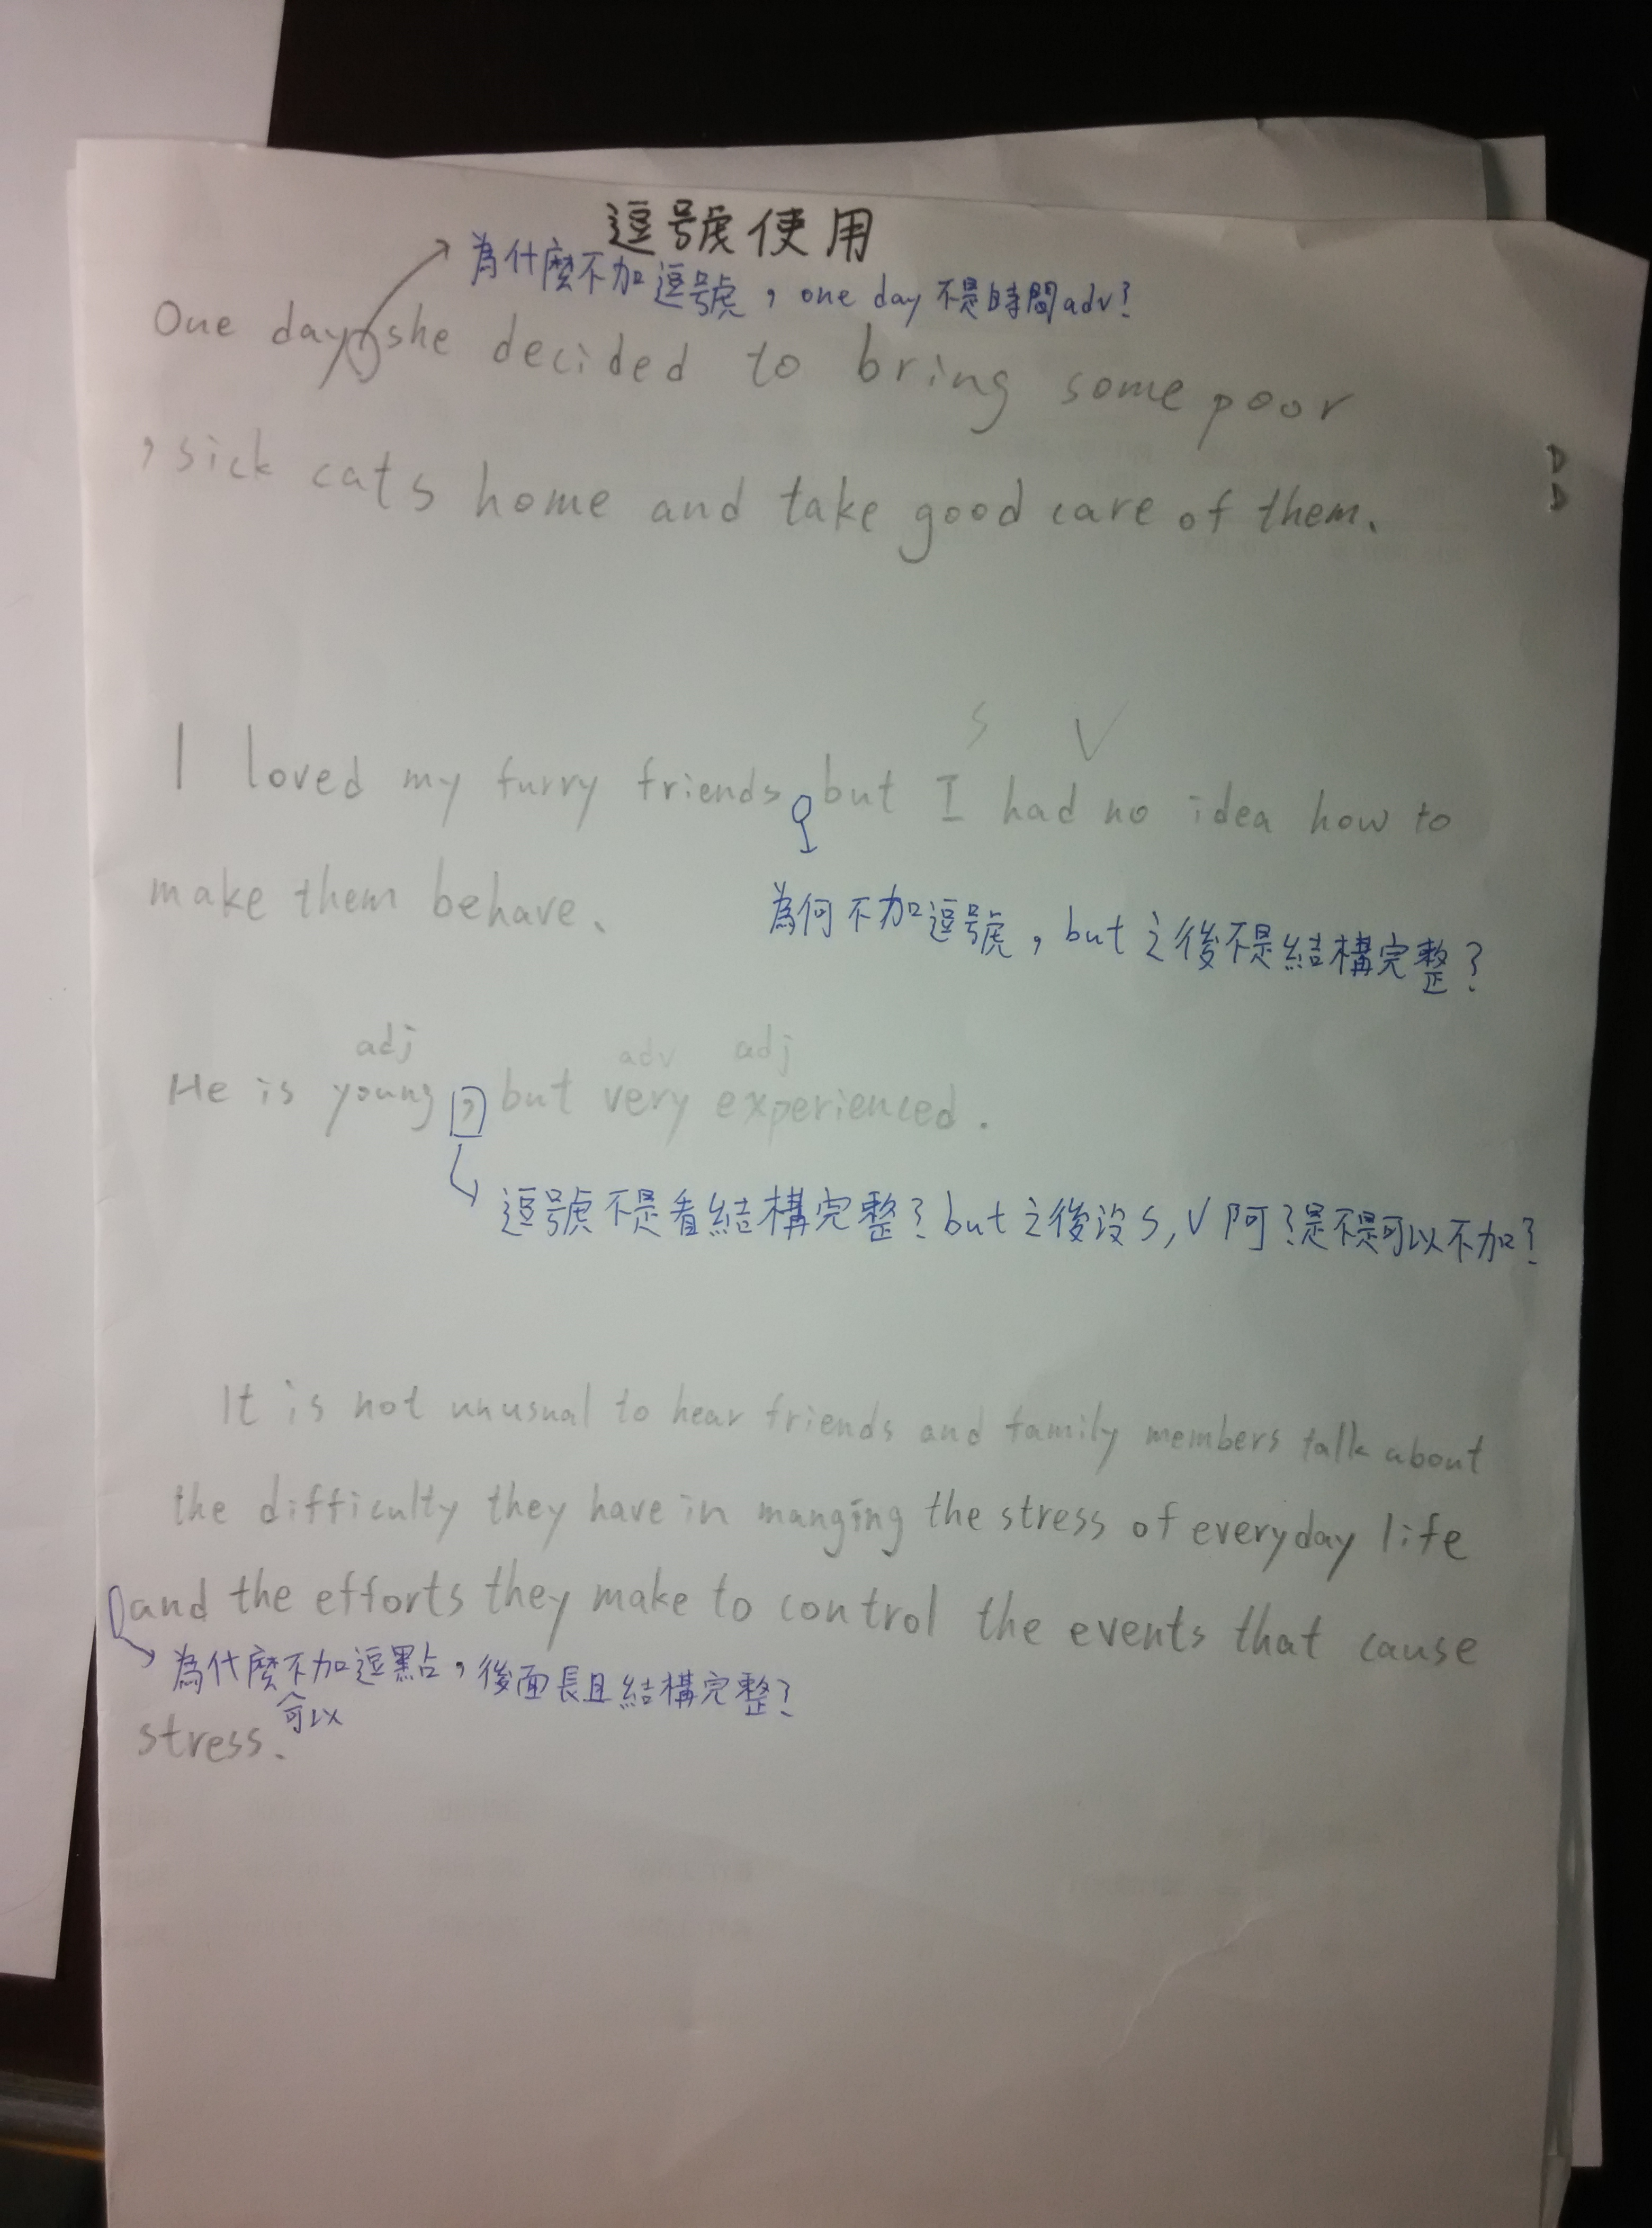 逗號使用
為什麼不加逗號，one day 不是時間adv?
One day, she decided to bring some poor
, sick cats home and take good care of them.
D
D
S V
I loved my furry friends but I had no idea how to
make them behave.
為何不加逗號，but 之後不是結構完整?
adj adv adj
He is young , but very experienced.
逗號不是看結構完整? but 之後沒 S, V 阿?是不是可以不加?
It is not unusual to hear friends and family members talk about
the difficulty they have in manging the stress of everyday life
and the efforts they make to control the events that cause
為什麼不加逗點，後面長且結構完整?
可以
stress.